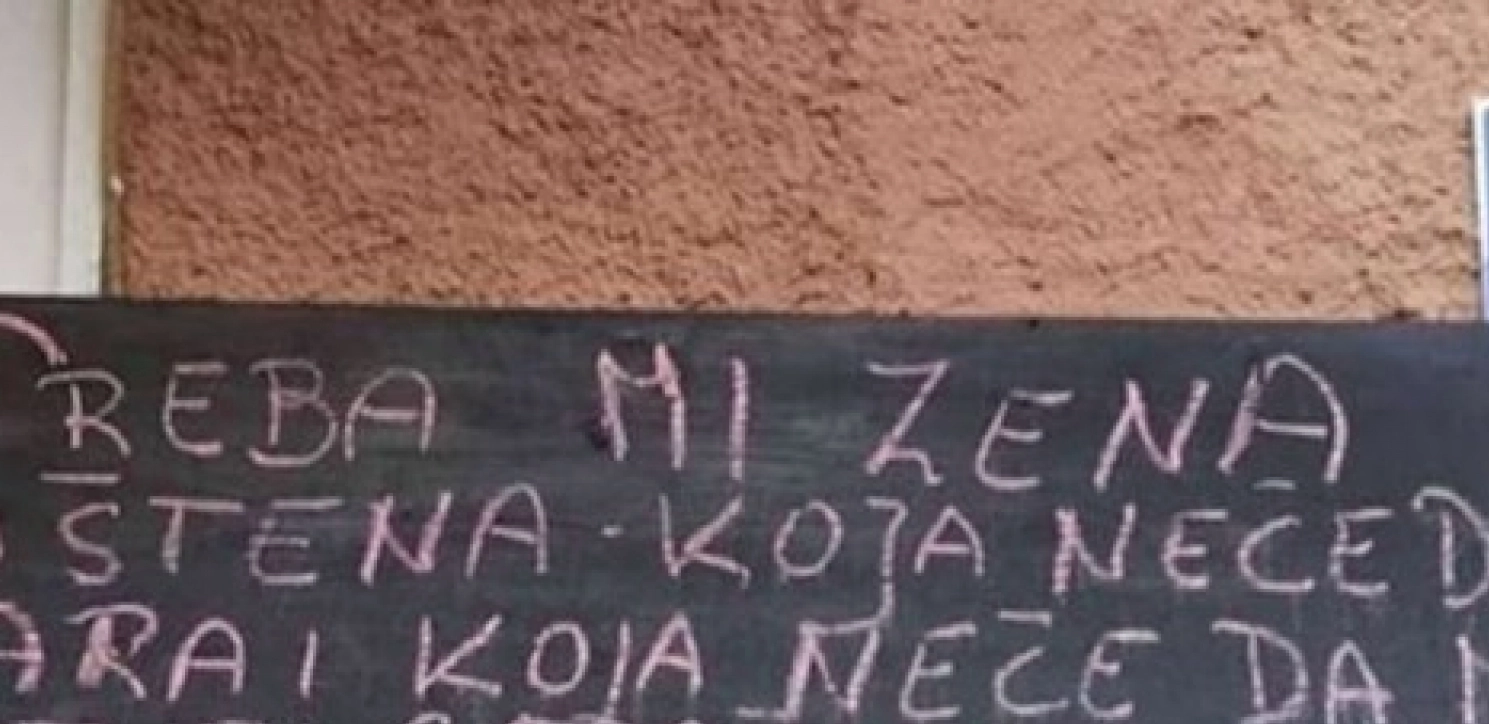 REBA MI ZENA
ŠTENA - KOJA NEĆE D
ARA I KOJA NEĆE DA